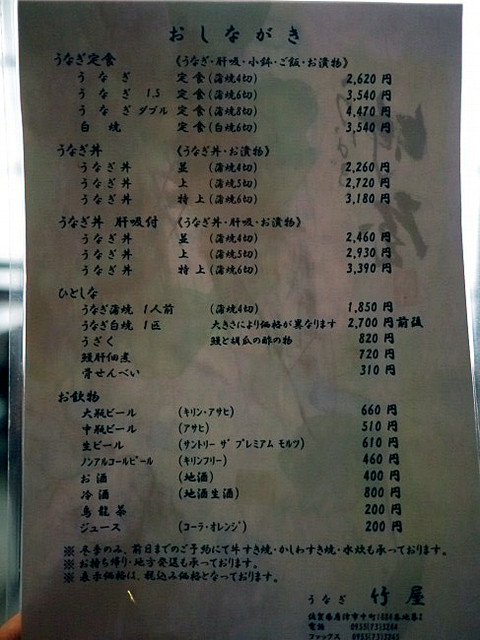 おしながき
うなぎ定食 《うなぎ・肝吸・小鉢・ご飯・お漬物》
うなぎ 定食(蒲焼4切) 2,620 円
うなぎ 1.5 定食(蒲焼6切) 3,540 円
うなぎ ダブル 定食(蒲焼8切) 4,470 円
白焼 定食(白焼6切) 3,540 円
うなぎ丼 《うなぎ丼・お漬物》
うなぎ丼 並 (蒲焼4切) 2,260 円
うなぎ丼 上 (蒲焼5切) 2,720 円
うなぎ丼 特上(蒲焼6切) 3,180 円
うなぎ丼 肝吸付 《うなぎ丼・肝吸・お漬物》
うなぎ丼 並 (蒲焼4切) 2,460 円
うなぎ丼 上 (蒲焼5切) 2,930 円
うなぎ丼 特上(蒲焼6切) 3,390 円
ひとしな
うなぎ蒲焼 1人前 (蒲焼4切) 1,850 円
うなぎ白焼 1匹 大きさにより価格が異なります 2,700 円前後
うざく 鰻と胡瓜の酢の物 820 円
鰻肝佃煮 720 円
骨せんべい 310 円
お飲物
大瓶ビール (キリン・アサヒ) 660 円
中瓶ビール (アサヒ) 510 円
生ビール (サントリー ザ プレミアム モルツ) 610 円
ノンアルコールビール (キリンフリー) 460 円
お酒 (地酒) 400 円
冷酒 (地酒生酒) 800 円
烏龍茶 200 円
ジュース (コーラ・オレンジ) 200 円
※ 冬季のみ、前日までのご予約にて牛すき焼・かしわすき焼・水炊も承っております。
※ お持ち帰り・地方発送も承っております。
※ 表示価格は、税込み価格となっております。
うなぎ 竹屋
佐賀県唐津市中町1884番地2
電話 0955(73)3244
ファックス